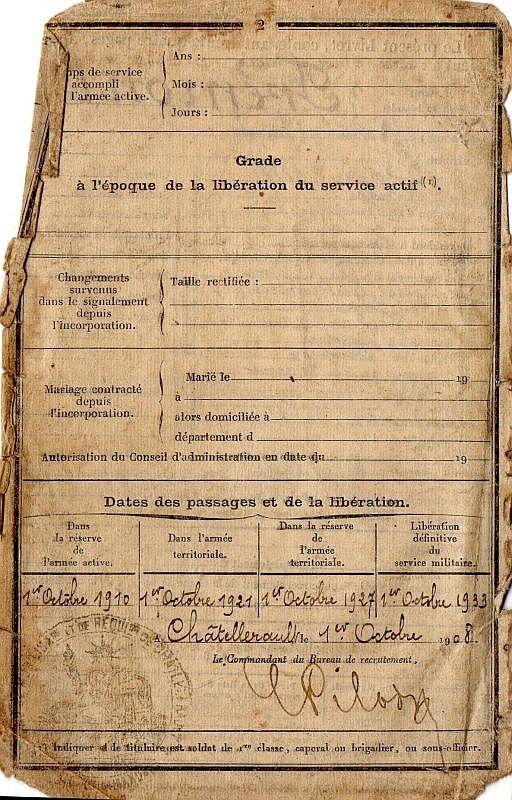 2
Ans :
ps de service
accompli
l'armée active.
Mois :
Jours :
Grade
à l'époque de la libération du service actif (1).
Changements
survenus
dans le signalement
depuis
l'incorporation.
Taille rectifiée :
Mariage contracté
depuis
l'incorporation.
Marié le 19
à
alors domiciliée à
département d
Autorisation du Conseil d'administration en date du 19
Dates des passages et de la libération.
Dans
la réserve
de
l'armée active.
Dans l'armée
territoriale.
Dans la réserve
de
l'armée
territoriale.
Libération
définitive
du
service militaire.
1er Octobre 1910 1er Octobre 1921 1er Octobre 1927 1er Octobre 1933
A Châtellerault le 1er Octobre 1908.
Le Commandant du Bureau de recrutement,
(1) Indiquer si le titulaire est soldat de 1re classe, caporal ou brigadier, ou sous-officier.